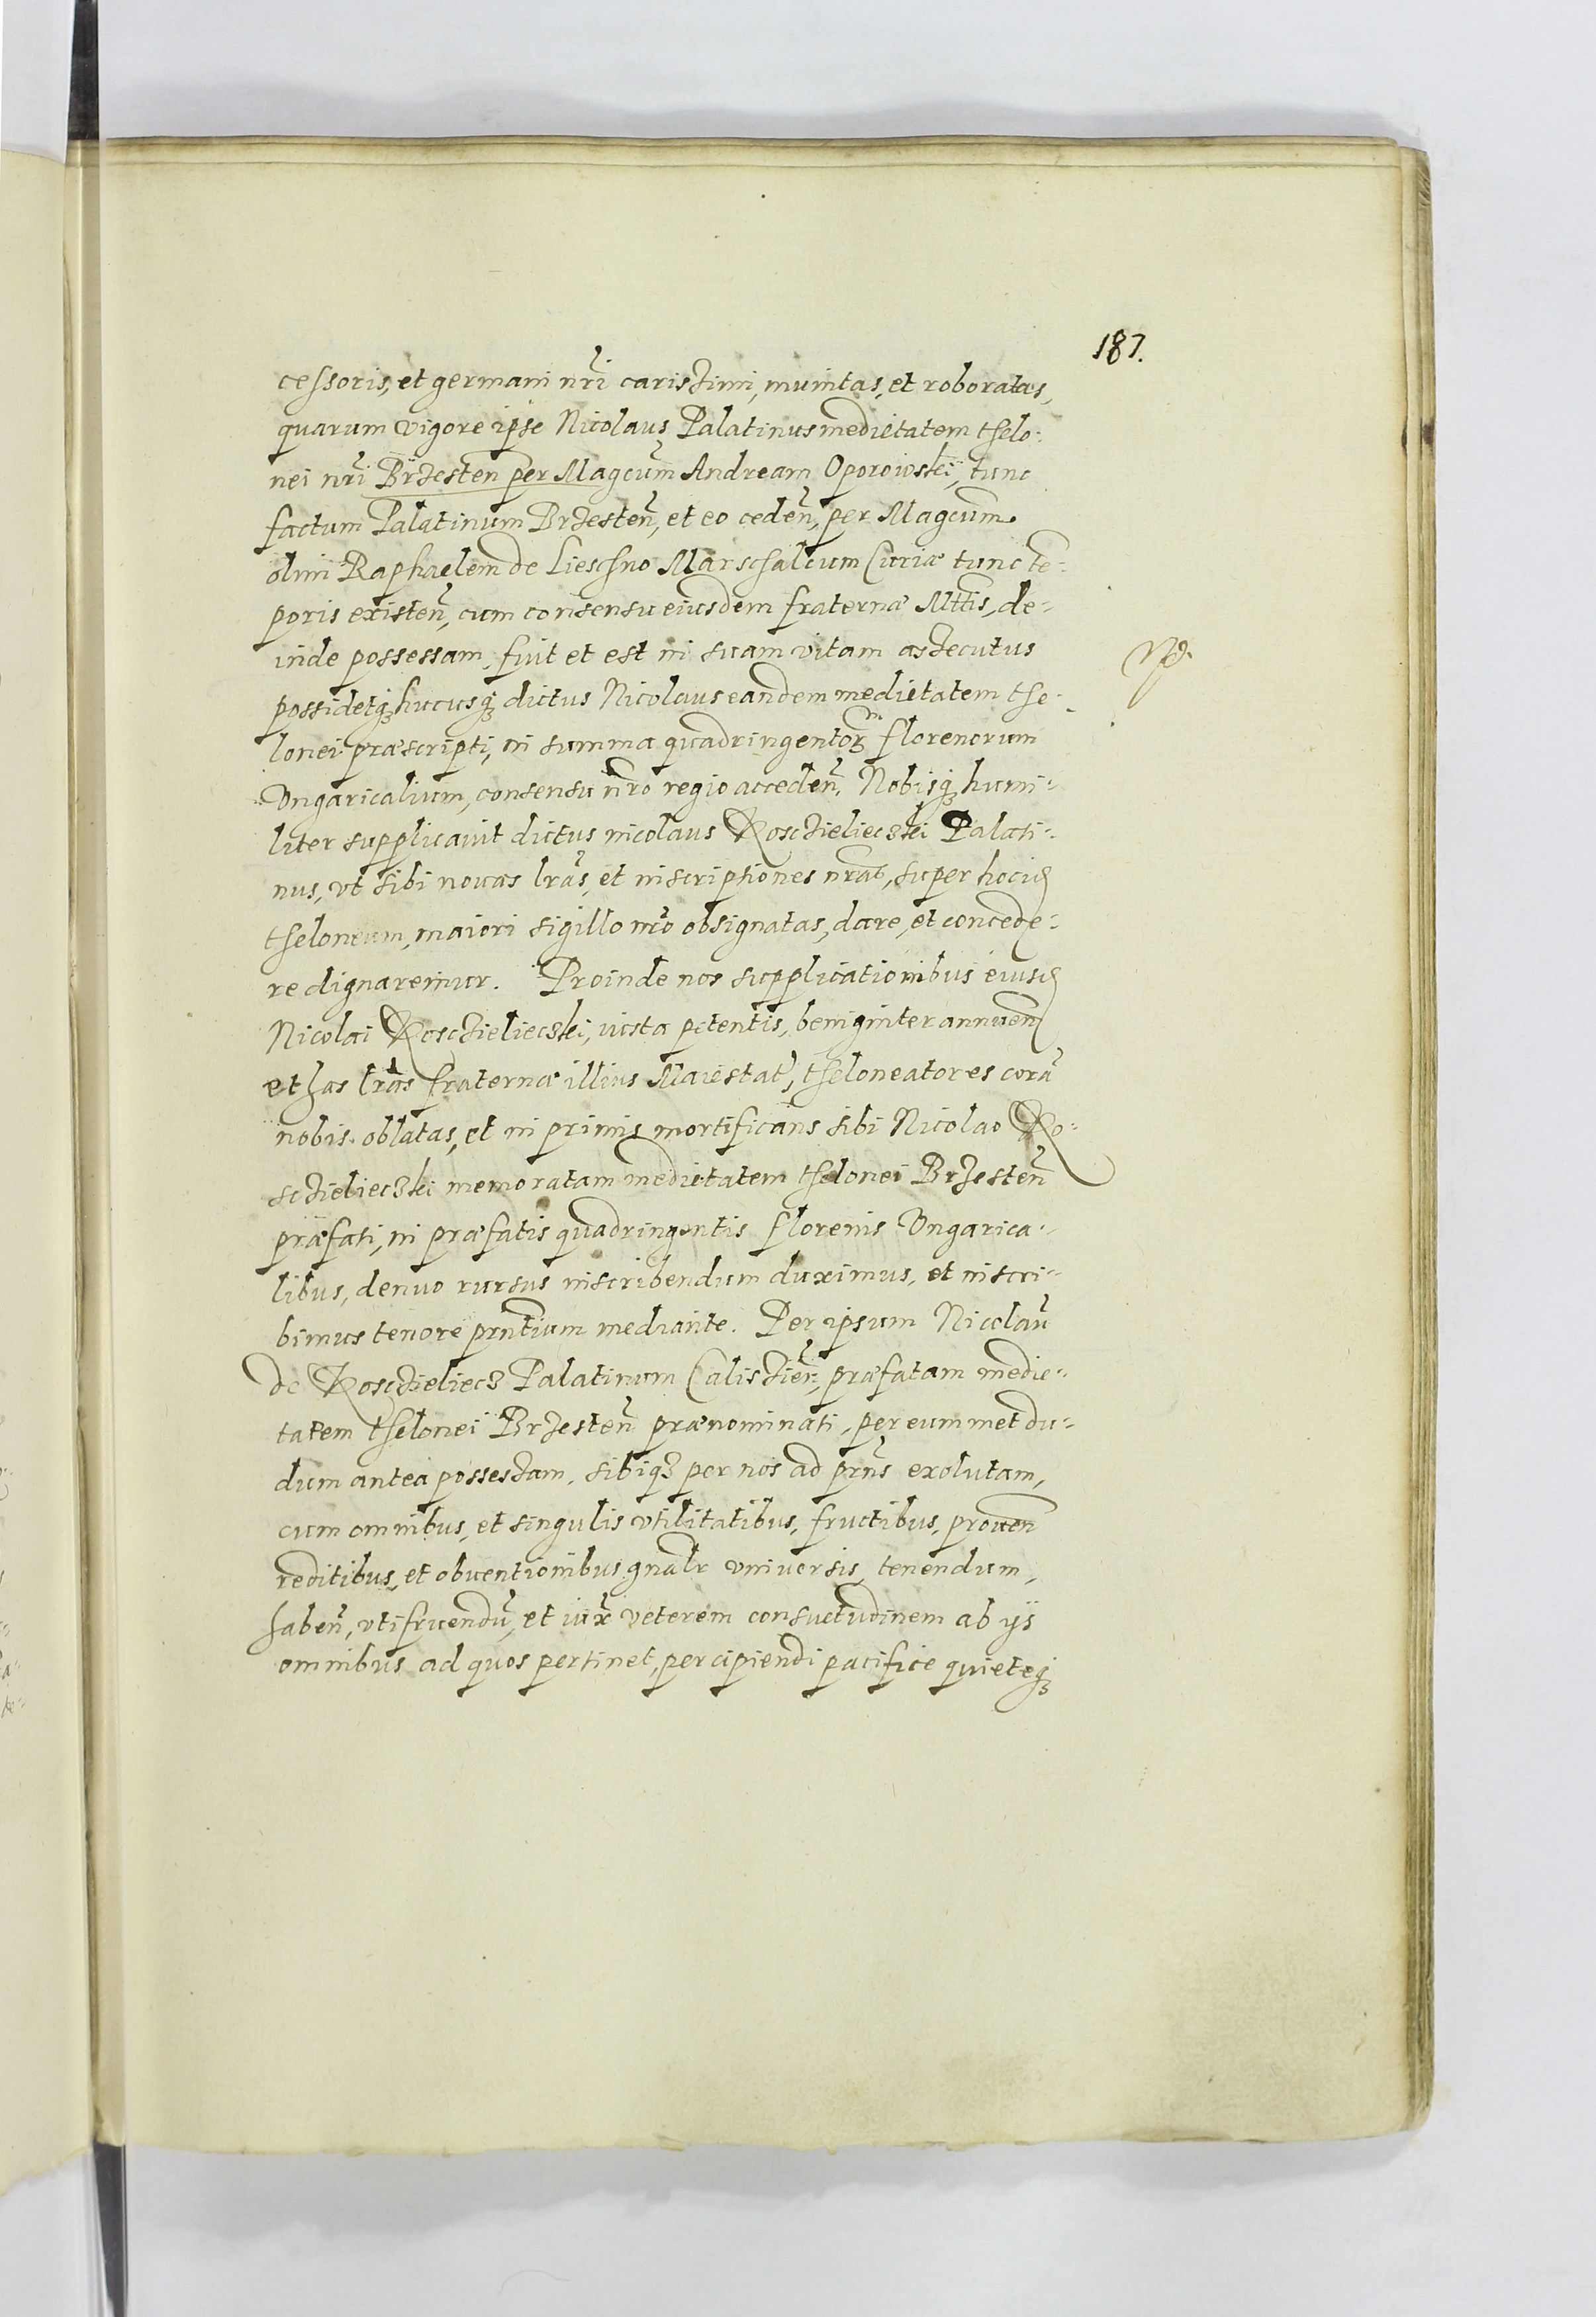 187.
cessoris, et germani nr̃i carissimi, munitas, et roboratas,
quarum vigore ipse Nicolaus Palatinus medietatem thelo-
nei nr̃i Brzesten per Magcum Andream Oporowski, tunc
factum Palatinum Brzesteñ, et eo cedeñ, per Magcum
olim Raphaelem de Lieschno Marschalcum Curiæ tunc te-
poris existeñ, cum consensu eiusdem fraternæ Mttis, de-
inde possessam, fuit et est in suam vitam assecutus
possidetq; hucusq; dictus Nicolaus eandem medietatem the-
lonei præscripti, in summa quadringentor; florenorum
Vngaricalium, consensu nr̃o regio accedeñ, Nobisq; humi-
liter supplicavit dictus nicolaus Kosczieliecski Palati-
nus, vt sibi novas lr̃as, et inscriptiones nr̃as, super hocid
theloneum, maiori sigillo nr̃o obsignatas, dare, et concede-
re dignaremur. Proinde nos supplicationibus eiusd
Nicolai Kosczieliecski, iusta petentis, benigniter annuen
et has lr̃as fraternæ illius Maiestat, theloneatores corã
nobis oblatas, et in primis mortificans sibi Nicolao Ko-
sczieliecski memoratam medietatem thelonei Brzesteñ
præfati, in præfatis quadringentis florenis Vngarica-
libus, denuo rursus inscribendum duximus, et inscri-
bimus tenore prntium mediante. Per ipsum Nicolaũ
de Kosczieliecz Palatinum Caliszieñ, præfatam medie-
tatem thelonei Brzesteñ prænominati, per eummet du-
dum antea possessam, sibiq; per nos ad prñs exolutam,
cum omnibus, et singulis vtilitatibus, fructibus, proven
reditibus, et obventionibus gnalr vniversis, tenendum,
habeñ, vtifruendũ, et iux̃ veterem consuetudinem ab ijs
omnibus ad quos pertinet, percipiendi pacifice quieteq;